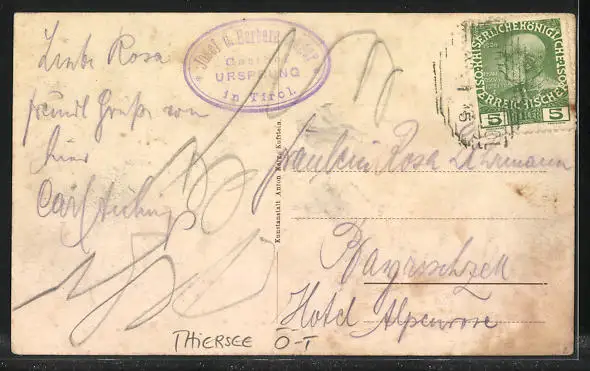 Liebe Rosa
freundl Grüße von
hier
Carl
Josef u. Barbara
Gasthof
URSPRUNG
in Tirol.
KAISERLICHE KÖNIGLICHE
ÖSTERREICHISCHE
5 HELLER 5
Kunstanstalt Anton Karg, Kufstein.
Fräulein Rosa
Bayrischzell
Hotel Alpenrose
THIERSEE Ö-T